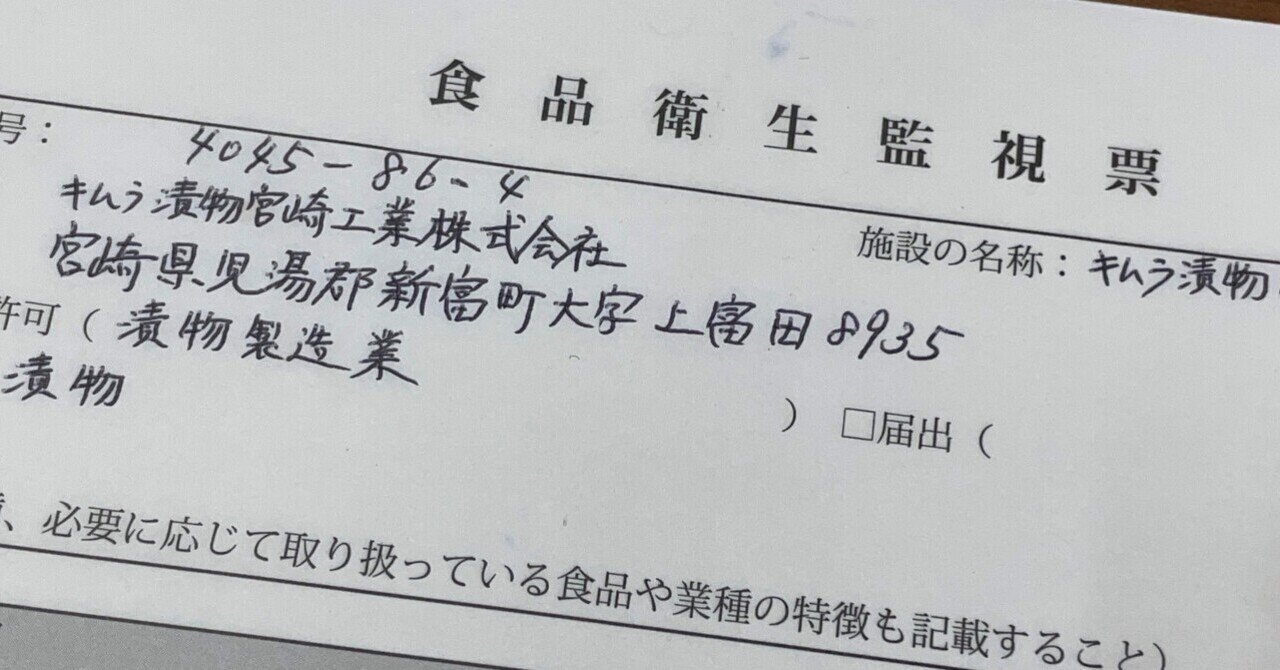 食品衛生監視票
号： 4045-86-4
キムラ漬物宮崎工業株式会社
施設の名称：キムラ漬物
宮崎県児湯郡新富町大字上富田8935
許可（漬物製造業
）□届出（
漬物
、必要に応じて取り扱っている食品や業種の特徴も記載すること）